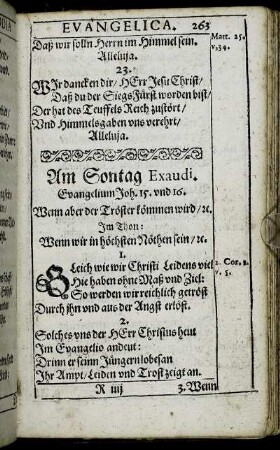 EVANGELICA. 263
Daß wir solln Herrn im Himmel sein. Matt. 25.
Alleluja. v. 34.
23.
WIr dancken dir/ HErr Jesu Christ/
Daß du der SiegsFürst worden bist/
Der hat des Teuffels Reich zustört/
Vnd Himmelsgaben vns verehrt/
Alleluja.
Am Sontag Exaudi.
Evangelium Joh. 15. vnd 16.
Wenn aber der Tröster kommen wird/ ꝛc.
Im Thon:
Wenn wir in höchsten Nöthen sein/ ꝛc.
1.
GLeich wie wir Christi Leidens viel 2. Cor. 1.
Hie haben ohne Maß vnd Ziel: v. 5.
So werden wir reichlich getröst
Durch ihn vnd aus der Angst erlöst.
2.
Solches vns der HErr Christus heut
Im Evangelio andeut:
Drinn er seinn Jüngern lobesan
Ihr Ampt/ Leiden vnd Trost zeigt an.
R iiij 3. Wenn